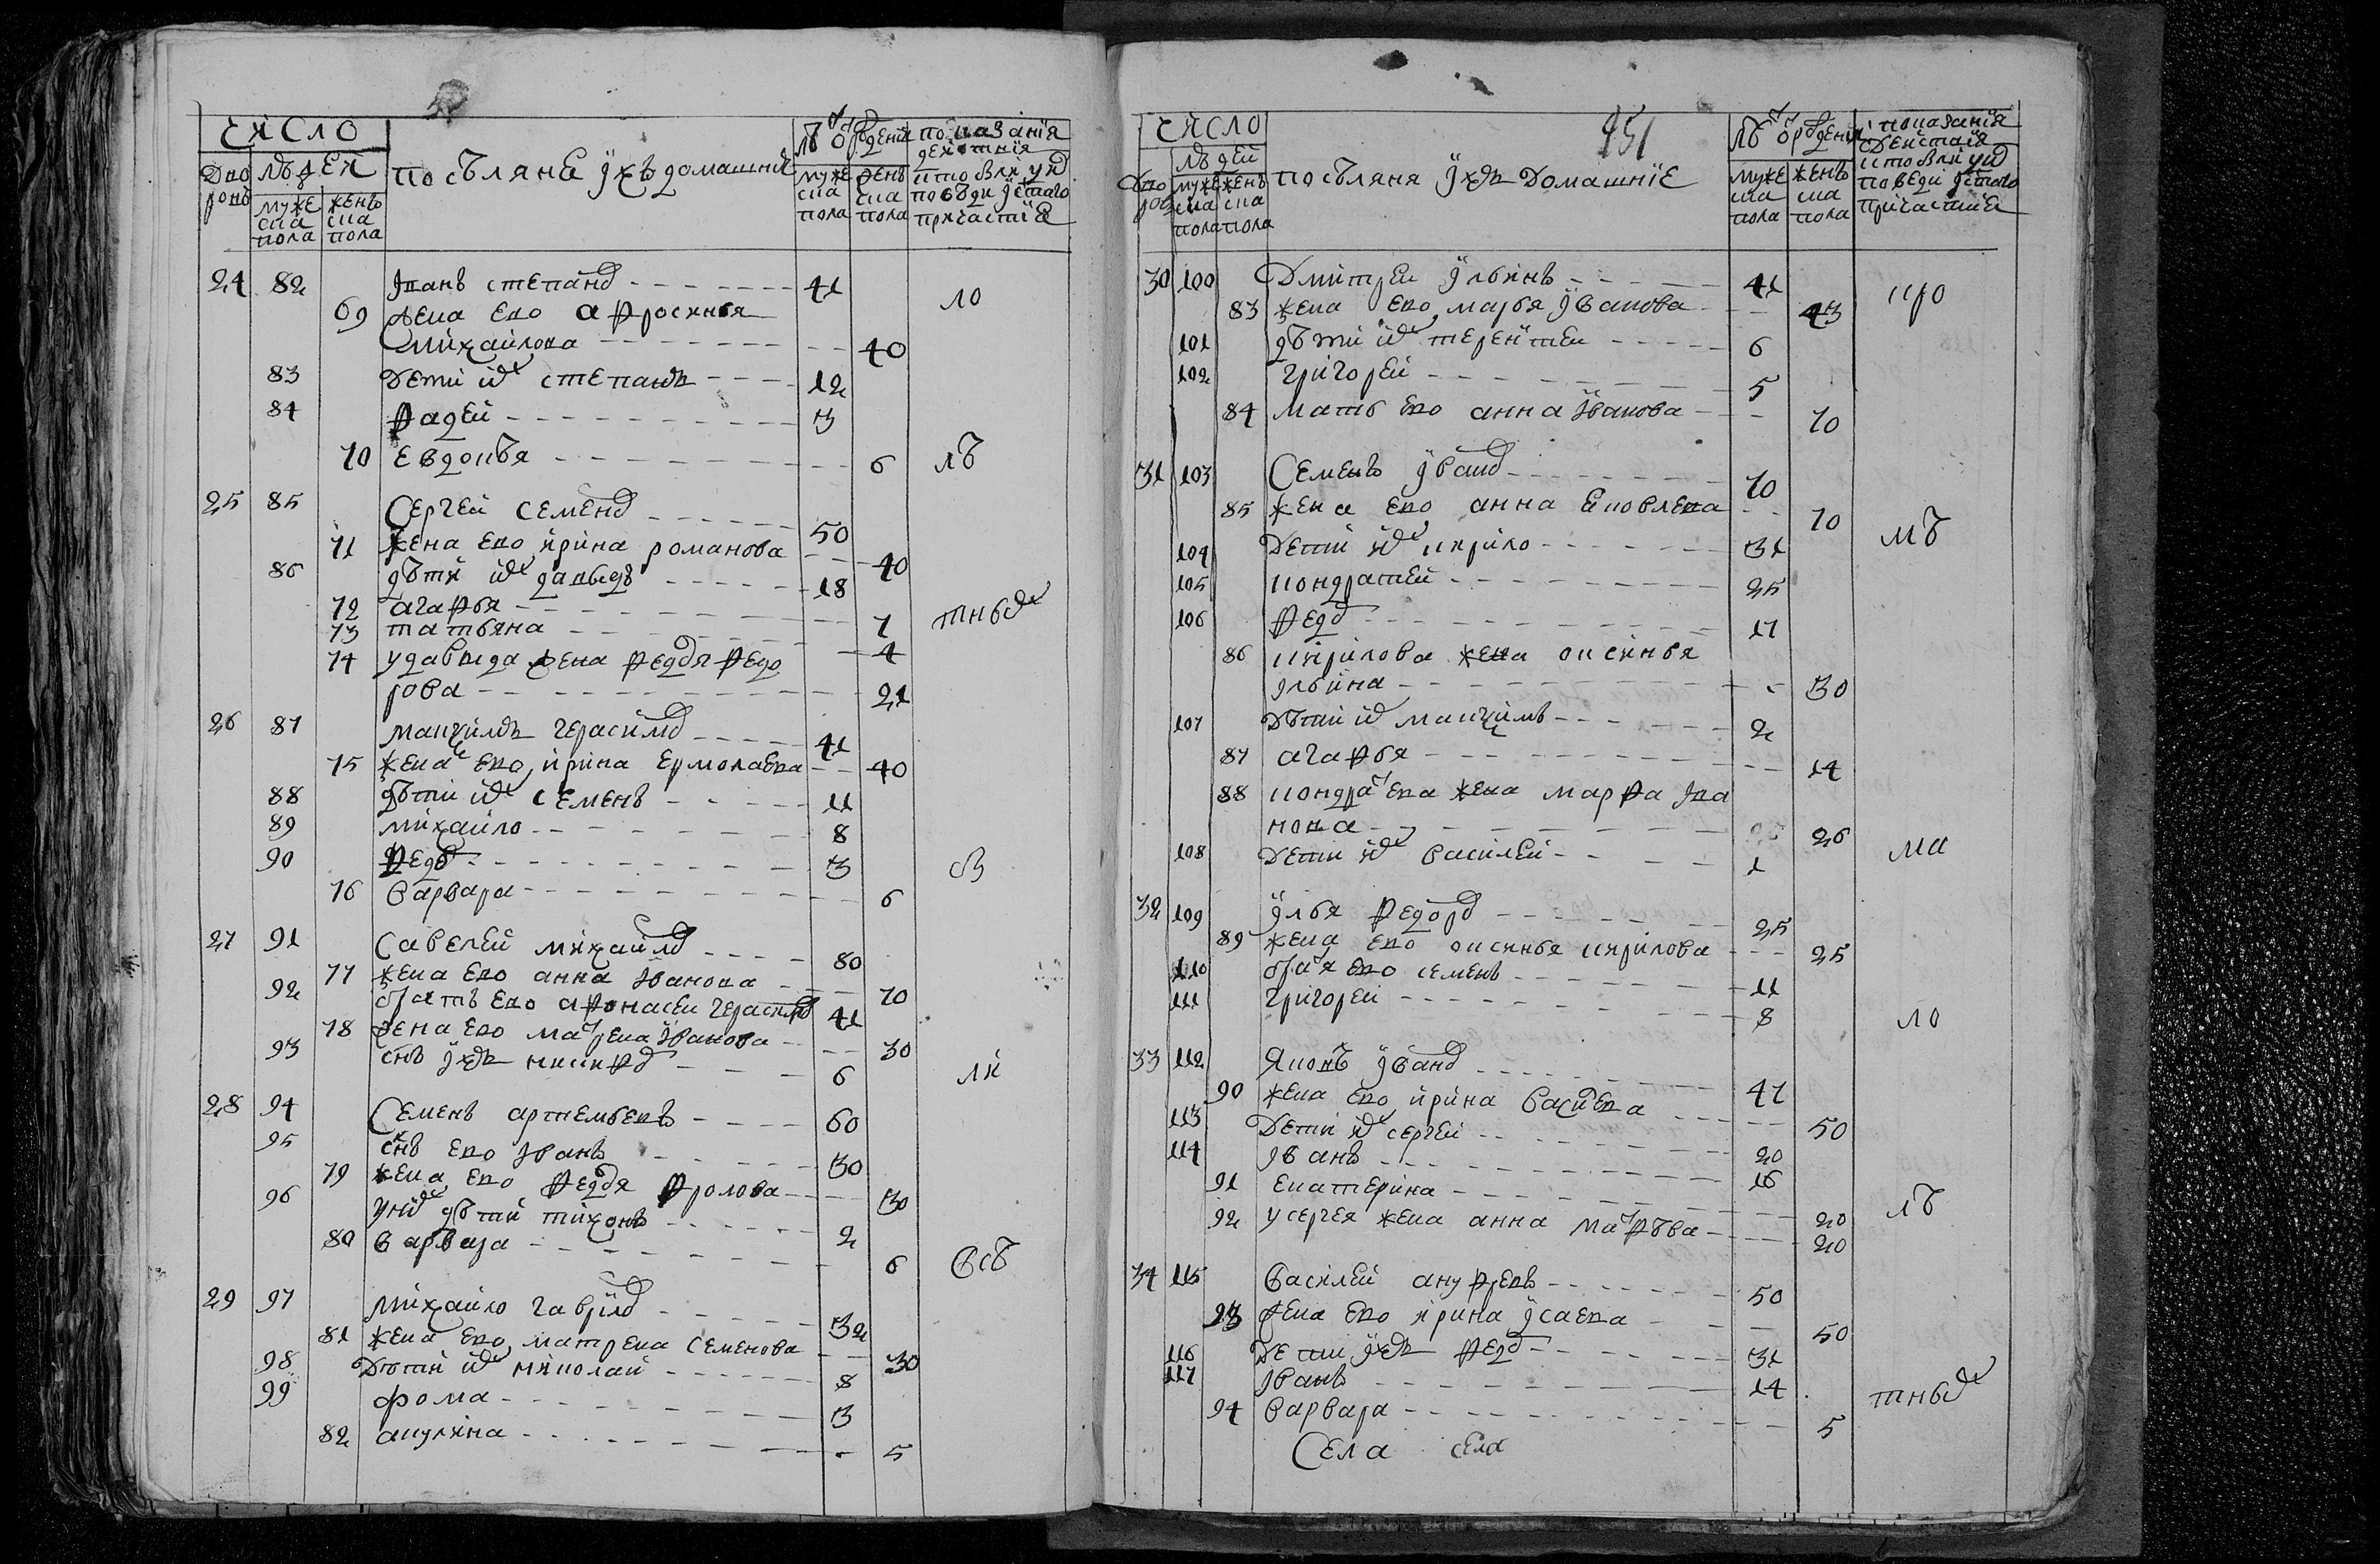 число
Дво ровъ
людей
муже ска пола
женъ ска пола
поселяне ихъ домашние
лѣ о рождения
муже ска пола
женъ ска пола
показания
24 82 Иванъ степанов 41
69 жена ево афросинья
михайлова 40
83 дети их степанъ 12
84 фадей 3
70 евдокѣя 6
25 85 Сергей семенов 50
71 жена ево ирина романова 40
86 дѣти их давыдъ 18
72 агафья 7
73 татьяна 4
74 у давыда жена федоя федо
рова 21
26 87 максимъ герасимов 41
75 жена ево ирина ермолаева 40
88 дѣти их семенъ 11
89 михайло 8
90 федор 3
76 варвара 6
27 91 Савелей михайлов 80
77 жена ево анна иванова 70
92 братъ ево афонасеи герасимов 41
78 жена ево матрена иванова 30
93 снъ ихъ никифор 6
28 94 Семенъ артемьевъ 60
95 снъ ево иванъ 30
79 жена ево федоя фролова 30
96 у них дѣти тихонъ 2
80 варвара 6
29 97 михайло гаврилов 32
81 жена ево матрена семенова 30
98 дѣти их николай 8
99 фома 3
82 акулина 5
ло
лѣ
тных
ов
ли
всѣ
число
951
Дво ров
людей
муже ска пола
женъ ска пола
поселяня ихъ домашние
лѣ о рождения
муже ска пола
женъ ска пола
показания
30 100 Дмитреи ильинъ 41
83 жена ево марья иванова 43
101 дѣти их терентеи 6
102 григорей 5
84 мать ево анна иванова 70
31 103 Семенъ иванов 70
85 жена ево анна яковлева 70
104 дети их кирило 31
105 кондратей 25
106 федор 17
86 кирилова жена оксинья
ильина 30
107 дѣти их максимъ 2
87 агафья 14
88 кондратева жена марфа ива
нова 26
108 дети их василей 1
32 109 илья федоров 25
89 жена ево оксинья кирилова 25
110 братя ево семенъ 11
111 григорей 8
33 112 яковъ иванов 47
90 жена ево ирина васильева 50
113 дети их сергеи 20
114 иванъ 16
91 екатерина 20
92 у сергея жена анна матфѣва 20
34 115 василей ануфревъ 50
93 жена ево ирина исаева 50
116 дети ихъ федор 31
117 иванъ 14
94 варвара 5
Села села
кро
мѣ
ма
ло
лѣ
тных